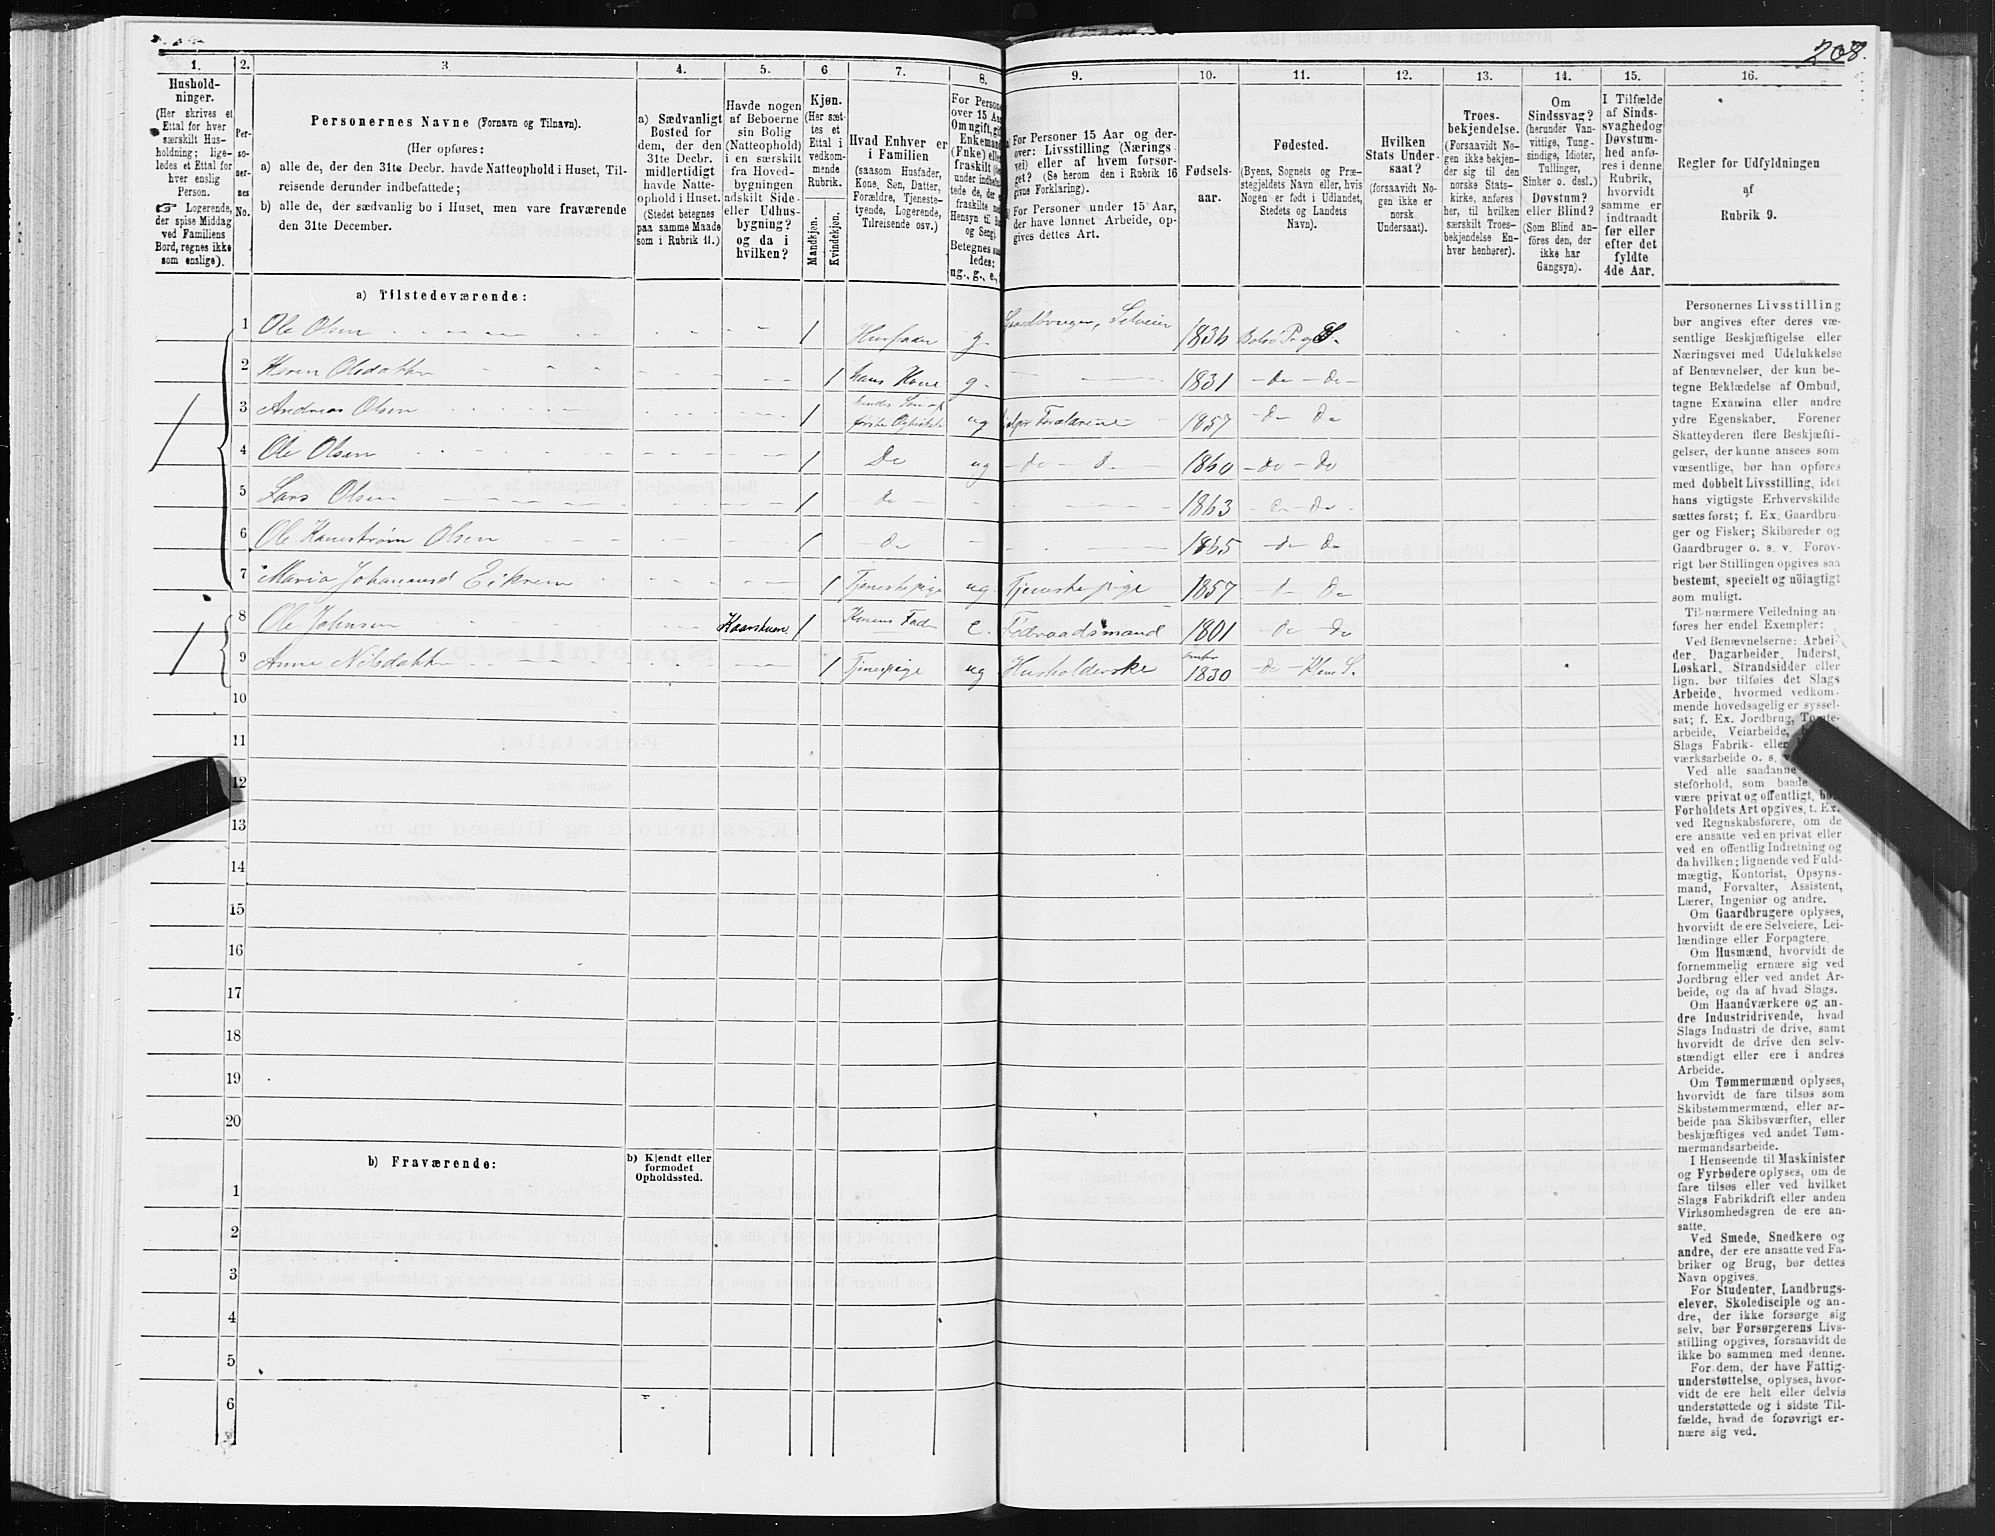 208.
1. 2. 3. 4. 5. 6 7. 8. 9. 10. 11. 12. 13. 14. 15. 16.
Hushold-
ninger.
(Her skrives et
Ettal for hver
særskilt Hus-
holdning; lige-
ledes et Ettal for
hver enslig
Person.
☞ Logerende,
der spise Middag
ved Familiens
Bord, regnes ikke
som enslige).
Per-
so-
ner-
nes
No.
Personernes Navne (Fornavn og Tilnavn).
(Her opføres:
a) alle de, der den 31te Decbr. havde Natteophold i Huset, Til-
reisende derunder indbefattede;
b) alle de, der sædvanlig bo i Huset, men vare fraværende
den 31te December.
a) Sædvanligt
Bosted for
dem, der den
31te Decbr.
midlertidigt
havde Natte-
ophold i Huset.
(Stedet betegnes
paa samme Maade
som i Rubrik 11.)
Havde nogen
af Beboerne
sin Bolig
(Natteophold)
i en særskilt
fra Hoved-
bygningen
adskilt Side-
eller Udhus-
bygning?
og da i
hvilken?
Kjøn.
(Her sæt-
tes et
Ettal i
vedkom-
mende
Rubrik.
Mandkjøn.
Kvindekjøn.
Hvad Enhver er
i Familien
(saasom Husfader,
Kone, Søn, Datter,
Forældre, Tjeneste-
tyende, Logerende,
Tilreisende osv.)
For Persone
over 15 Aa
Om ugift, gif
Enkemand
(Enke) elle
fraskilt (der
under indbefat
tede de, der er
fraskilte
Hensyn til
og Seng)
Betegnes saa
ledes:
ug., g., e.,
For Personer 15 Aar og der-
over: Livsstilling (Nærings-
vei) eller af hvem forsør-
get? (Se herom den i Rubrik 16
givne Forklaring).
For Personer under 15 Aar,
der have lønnet Arbeide, op-
gives dettes Art.
Fødsels-
aar.
Fødested.
(Byens, Sognets og Præ-
stegjeldets Navn eller, hvis
Nogen er født i Udlandet,
Stedets og Landets
Navn).
Hvilken
Stats Under-
saat?
(forsaavidt No-
gen ikke er
norsk
Undersaat).
Troes-
bekjendelse.
(Forsaavidt No-
gen ikke bekjen-
der sig til den
norske Stats-
kirke, anføres
her, til hvilken
særskilt Troes-
bekjendelse En-
hver henhører).
Om
Sindssvag?
(herunder Van-
vittige, Tung-
sindige, Idioter,
Tullinger,
Sinker o. desl.)
Døvstum?
eller Blind?
(Som Blind an-
føres den, der
ikke har
Gangsyn).
I Tilfælde
af Sinds-
svaghed og
Døvstum-
hed anfø-
res i denne
Rubrik,
hvorvidt
samme er
indtraadt
før eller
efter det
fyldte
4de Aar.
Regler for Udfyldningen
af
Rubrik 9.
a) Tilstedeværende:
1 Ole Olsen 1 Husfader g. Gaardbruger, Selveier 1836 Bolsø Pr og S.
2 Karen Olsdatter 1 hans Kone g. 1831 do do
3 Andreas Olsen 1 hendes Søn af første Ægteskab ug 1857 do do
4 Ole Olsen 1 Do ug do 1860 do do
5 Lars Olsen 1 do 1863 do do
6 Ole Olsen 1 do 1865 do do
7 Maria Eikrem 1 Tjenestepige ug. Tjenestepige 1857 do do
8 Ole Johnsen Kaarstuen 1 Konens Fader e. Føderaadsmand 1801 do do
9 Anne Nilsdatter 1 Tjenepige ug Husholderske 1830 do
10
11
12
13
14
15
16
17
18
19
20
b) Fraværende:
b) Kjendt eller
formodet
Opholdssted.
1
2
3
4
5
6
Personernes Livsstilling
bør angives efter deres væ-
sentlige Beskjæftigelse eller
Næringsvei med Udelukkelse
af Benævnelser, der kun be-
tegne Beklædelse af Ombud,
tagne Examina eller andre
ydre Egenskaber. Forener
Skatteyderen flere Beskjæfti-
gelser, der kunne ansees som
væsentlige, bør han opføres
med dobbelt Livsstilling, idet
hans vigtigste Erhvervskilde
sættes først; f. Ex. Gaardbru-
ger og Fisker; Skibsreder og
Gaardbruger o. s. v. Forøv-
rigt bør Stillingen opgives saa
bestemt, specielt og nöiagtigt
som muligt.
Til nærmere Veiledning an-
føres her endel Exempler:
Ved Benævnelserne: Arbei-
der, Dagarbeider, Inderst,
Løskarl, Strandsidder eller
lign. bør tilføies det Slags
Arbeide, hvormed vedkom-
mende hovedsagelig er syssel-
sat; f. Ex. Jordbrug, Tomte-
arbeide, Veiarbeide,
Slags Fabrik- eller
værksarbeide o. s. v.
Ved alle saadanne
steforhold, som baade
være privat og offentligt, bør
Forholdets Art opgives, t. Ex.
ved Regnskabsførere, om de
ere ansatte ved en privat eller
ved en offentlig Indretning og
da hvilken; lignende ved Fuld-
mægtig, Kontorist, Opsyns-
mand, Forvalter, Assistent,
Lærer, Ingeniør og andre.
Om Gaardbrugere oplyses,
hvorvidt de ere Selveiere, Lei-
lændinge eller Forpagtere.
Om Husmænd, hvorvidt de
fornemmelig ernære sig ved
Jordbrug eller ved andet Ar-
beide, og da af hvad Slags.
Om Haandværkere og an-
dre Industridrivende, hvad
Slags Industri de drive, samt
hvorvidt de drive den selv-
stændigt eller ere i andres
Arbeide.
Om Tømmermænd oplyses,
hvorvidt de fare tilsøs som
Skibstømmermænd, eller ar-
beide paa Skibsværfter, eller
beskjæftiges ved andet Tøm-
mermandsarbeide.
I Henseende til Maskinister
og Fyrbødere oplyses, om de
fare tilsøs eller ved hvilket
Slags Fabrikdrift eller anden
Virksomhedsgren de ere an-
satte.
Ved Smede, Snedkere og
andre, der ere ansatte ved Fa-
briker og Brug, bør dettes
Navn opgives.
For Studenter, Landbrugs-
elever, Skoledisciple og an-
dre, der ikke forsørge sig
selv, bør Forsørgerens Livs-
stilling opgives, forsaavidt de
ikke bo sammen med denne.
For dem, der have Fattig-
understøttelse, oplyses, hvor-
vidt de ere helt eller delvis
understøttede og i sidste Til-
fælde, hvad de forøvrigt er-
nære sig ved.